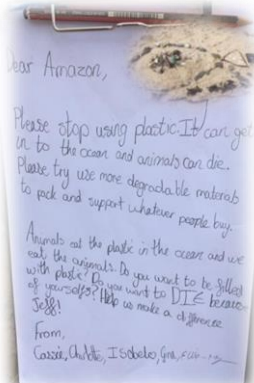 Dear Amazon,
Please stop using plastic. It can get
in to the ocean and animals can die.
Please try use more degradable materials
to pack and support whatever people buy.
Animals eat the plastic in the ocean and we
eat the animals. Do you want to be filled
with plastic? Do you want to DIE because
of yourselfs? Help us make a difference
Jeff!
From,
Cassie, Charlotte, Isobelle,